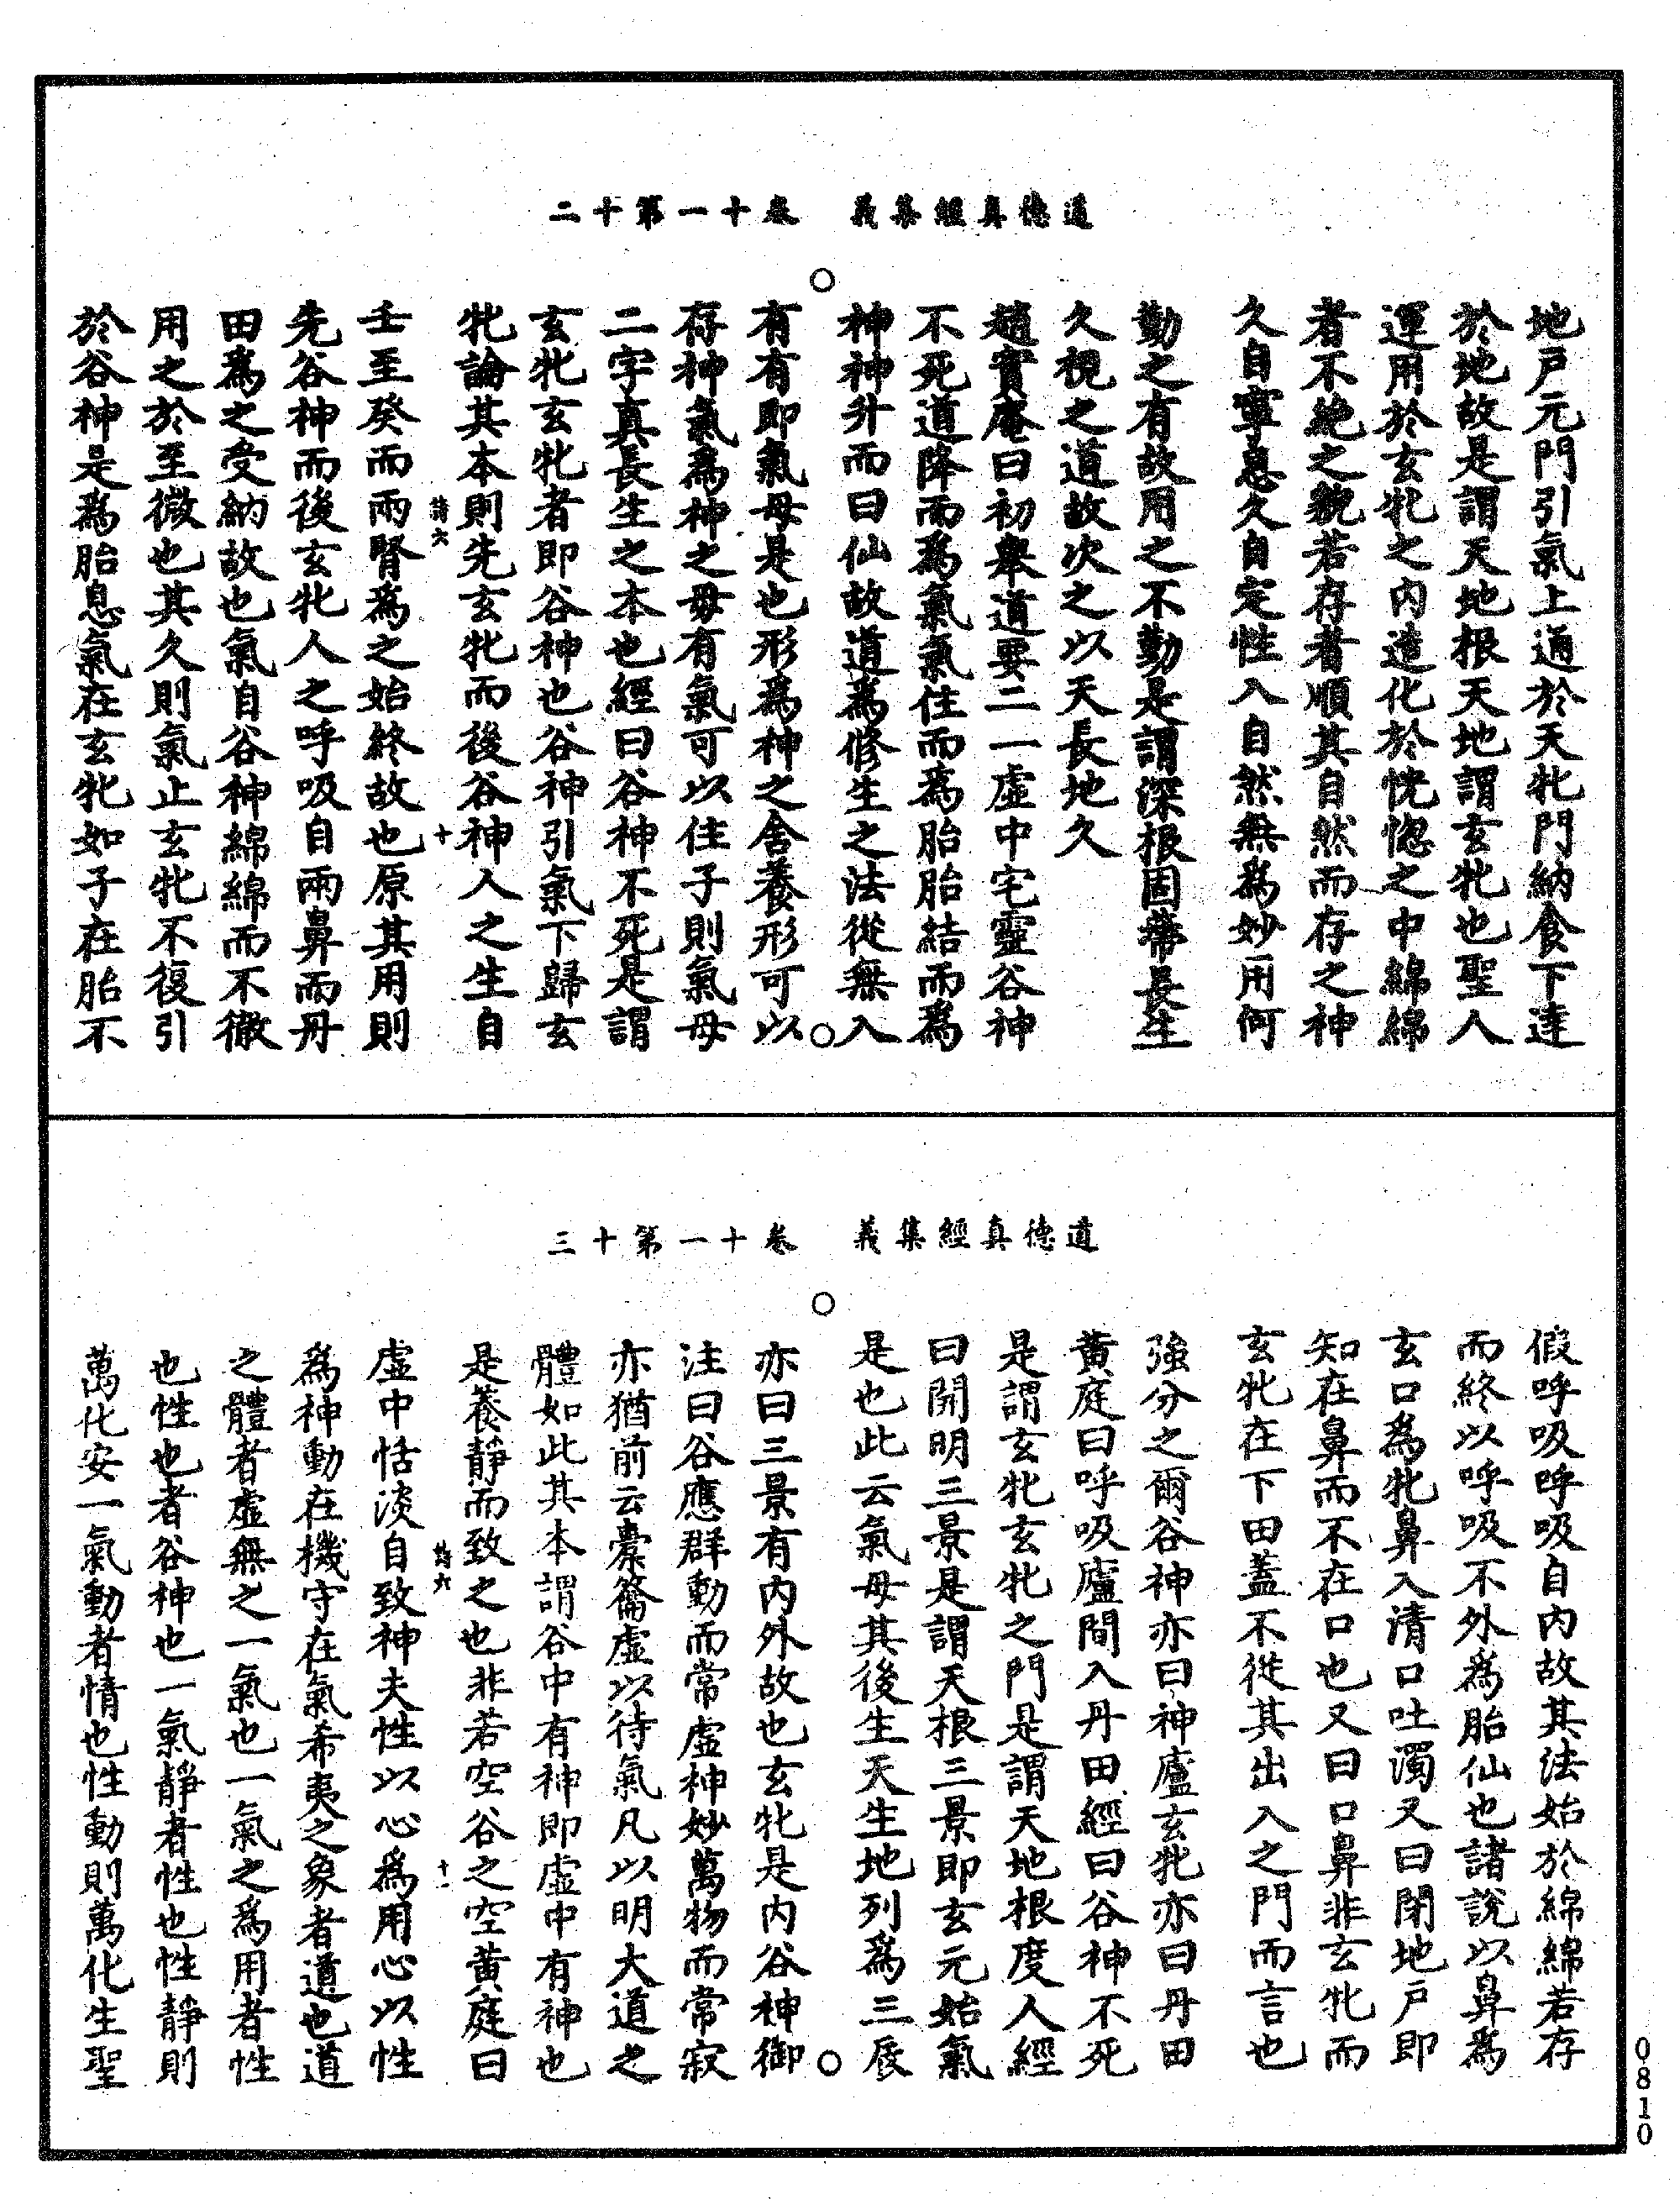 道德真經集義　卷十一第十二
地戶元門引氣上通於天牝門納食下達
於地故是謂天地根天地謂玄牝也聖人
運用於玄牝之內造化於恍惚之中綿綿
者不絕之貌若存者順其自然而存之神
久自寧息久自定性入自然無為妙用何
勤之有故用之不勤是謂深根固蒂長生
久視之道故次之以天長地久
趙實庵曰初舉道要二一虛中宅靈谷神
不死道降而為氣氣住而為胎胎結而為
神神升而曰仙故道為修生之法從無入
有有即氣母是也形為神之舍養形可以
存神氣為神之母有氣可以住子則氣母
二字真長生之本也經曰谷神不死是謂
玄牝玄牝者即谷神也谷神引氣下歸玄
牝論其本則先玄牝而後谷神人之生自
詩六　十
壬至癸而兩腎為之始終故也原其用則
先谷神而後玄牝人之呼吸自兩鼻而丹
田為之受納故也氣自谷神綿綿而不徹
用之於至微也其久則氣止玄牝不復引
於谷神是為胎息氣在玄牝如子在胎不
道德真經集義　卷十一第十三
假呼吸呼吸自內故其法始於綿綿若存
而終以呼吸不外為胎仙也諸說以鼻為
玄口為牝鼻入清口吐濁又曰閉地戶即
知在鼻而不在口也又曰口鼻非玄牝而
玄牝在下田蓋不從其出入之門而言也
強分之爾谷神亦曰神廬玄牝亦曰丹田
黃庭曰呼吸廬間入丹田經曰谷神不死
是謂玄牝玄牝之門是謂天地根度人經
曰開明三景是謂天根三景即玄元始氣
是也此云氣母其後生天生地列為三辰
亦曰三景有內外故也玄牝是內谷神御
注曰谷應群動而常虛神妙萬物而常寂
亦猶前云橐籥虛以待氣凡以明大道之
體如此其本謂谷中有神即虛中有神也
是養靜而致之也非若空谷之空黃庭曰
詩六　十一
虛中恬淡自致神夫性以心為用心以性
為神動在機守在氣希夷之象者道也道
之體者虛無之一氣也一氣之為用者性
也性也者谷神也一氣靜者性也性靜則
萬化安一氣動者情也性動則萬化生聖
0810